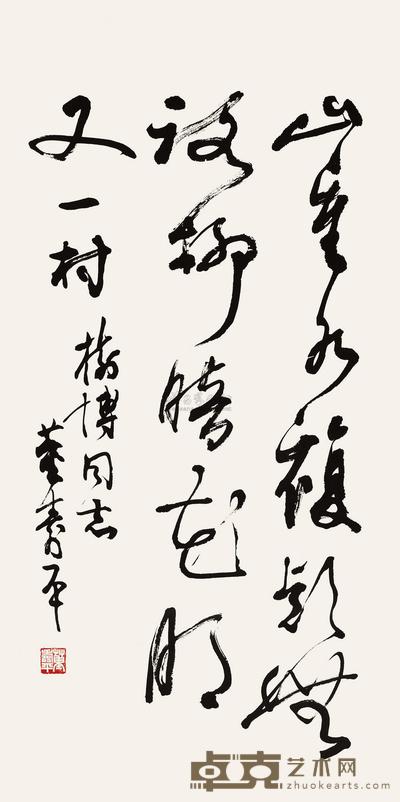 山重水複疑無
路柳暗花明
又一村
樹博同志
董壽平
卓克艺术网
zhuokearts.com